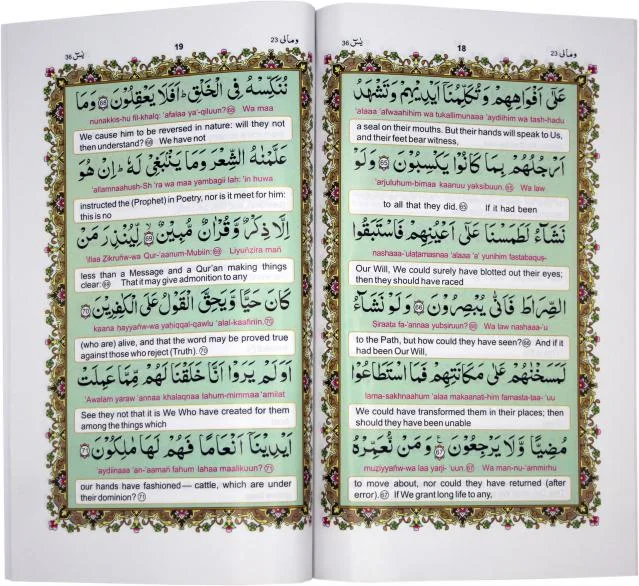 يٰسٓ 36
18
ومالى 23
عَلٰٓى اَفْوَاهِهِمْ وَتُكَلِّمُنَآ اَيْدِيْهِمْ وَتَشْهَدُ
'alaaa 'afwaahihim wa tukallimunaaa 'aydihim wa tash-hadu
a seal on their mouths. But their hands will speak to Us,
and their feet bear witness,
اَرْجُلُهُمْ بِمَا كَانُوْا يَكْسِبُوْنَ ﴿65﴾ وَلَوْ
'arjuluhum-bimaa kaanuu yaksibuun. 65 Wa law
to all that they did. 65 If it had been
نَشَآءُ لَطَمَسْنَا عَلٰٓى اَعْيُنِهِمْ فَاسْتَبَقُوا
nashaaa-'ulatamasnaa 'alaaa 'a' yunihim fastabaquṣ-
Our Will, We could surely have blotted out their eyes;
then they should have raced
الصِّرَاطَ فَاَنّٰى يُبْصِرُوْنَ ﴿66﴾ وَلَوْ نَشَآءُ
Ṣiraata fa-'annaa yubṣiruun? 66 Wa law nashaaa-'u
to the Path, but how could they have seen? 66 And if it
had been Our Will,
لَمَسَخْنٰهُمْ عَلٰى مَكَانَتِهِمْ فَمَا اسْتَطَاعُوْا
lama-sakhnaahum 'alaa makaanat-him famasta-taa-'uu
We could have transformed them in their places; then
should they have been unable
مُضِيًّا وَّلَا يَرْجِعُوْنَ ﴿67﴾ وَمَنْ نُّعَمِّرْهُ
muẓiyyañw-wa laa yarji-'uun. 67 Wa man-nu-'ammirhu
to move about, nor could they have returned (after
error). 67 If We grant long life to any,
يٰسٓ 36
19
ومالى 23
نُنَكِّسْهُ فِى الْخَلْقِ ؕ اَفَلَا يَعْقِلُوْنَ ﴿68﴾ وَمَا
nunakkis-hu fil-khalq: 'afalaa ya'-qiluun? 68 Wa maa
We cause him to be reversed in nature: will they not
then understand? 68 We have not
عَلَّمْنٰهُ الشِّعْرَ وَمَا يَنْۢبَغِىْ لَهٗ ؕ اِنْ هُوَ
'allamnaahush-Sh 'ra wa maa yambagii lah: 'in huwa
instructed the (Prophet) in Poetry, nor is it meet for him:
this is no
اِلَّا ذِكْرٌ وَّقُرْاٰنٌ مُّبِيْنٌ ﴿69﴾ لِّيُنْذِرَ مَنْ
'illaa Zikruñw-wa Qur-'aanum-Mubiin: 69 Liyuñzira mañ
less than a Message and a Qur'an making things
clear: 69 That it may give admonition to any
كَانَ حَيًّا وَّيَحِقَّ الْقَوْلُ عَلَى الْكٰفِرِيْنَ ﴿70﴾
kaana hayyañw-wa yaḥiqqal-qawlu 'alal-kaafiriin. 70
(who are) alive, and that the word may be proved true
against those who reject (Truth). 70
اَوَلَمْ يَرَوْا اَنَّا خَلَقْنَا لَهُمْ مِّمَّا عَمِلَتْ
'Awalam yaraw 'annaa khalaqnaa lahum-mimmaa 'amilat
See they not that it is We Who have created for them
among the things which
اَيْدِيْنَآ اَنْعَامًا فَهُمْ لَهَا مٰلِكُوْنَ ﴿71﴾
'aydiinaaa 'an-'aamañ fahum lahaa maalikuun? 71
our hands have fashioned— cattle, which are under
their dominion? 71